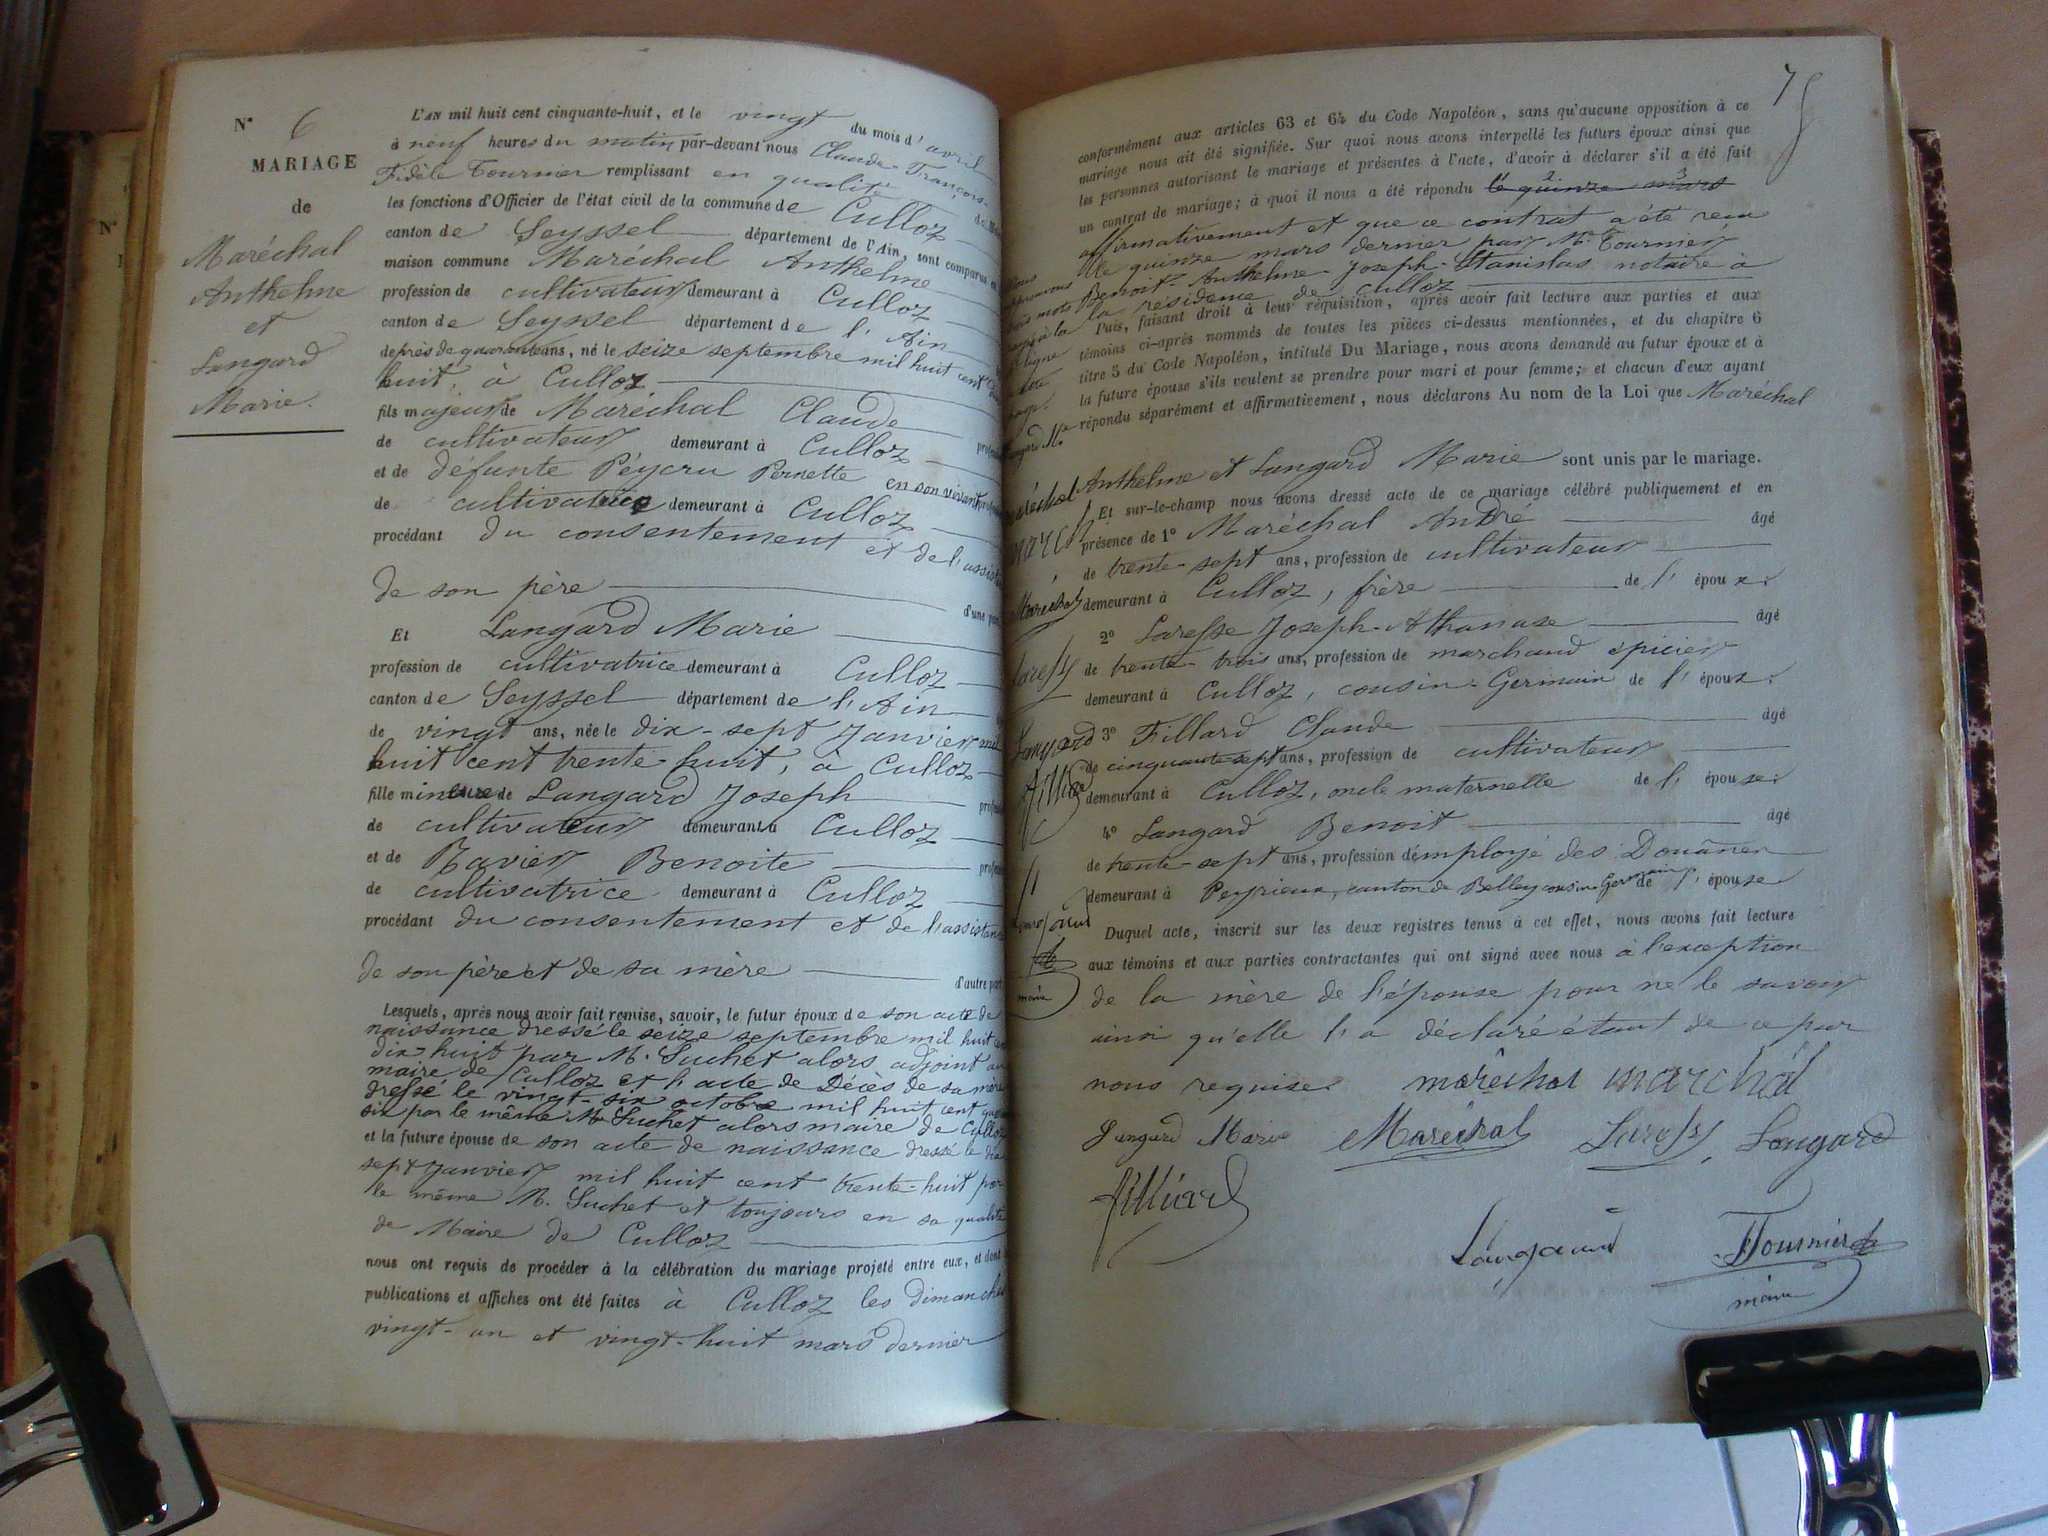 N° 6
MARIAGE
de
Maréchal
Anthelme
et
Langard
Marie.
L'AN mil huit cent cinquante-huit, et le vingt du mois d'avril
à neuf heures du matin par-devant nous Claude-François-
Fidèle Tournier remplissant en qualité de
les fonctions d'Officier de l'état civil de la commune de Culloz
canton de Seyssel département de l'Ain, sont comparus en
maison commune Maréchal Anthelme
profession de cultivateur demeurant à Culloz
canton de Seyssel département de l'Ain
de près de quarante ans, né le seize septembre mil huit cent dix
huit, à Culloz
fils majeur de Maréchal Claude
de cultivateur demeurant à Culloz
et de défunte Péycru Pernette en son vivant
de cultivatrice demeurant à Culloz
procédant du consentement et de l'assist
de son père d'une part
Et Langard Marie
profession de cultivatrice demeurant à Culloz
canton de Seyssel département de l'Ain
de vingt ans, née le dix-sept Janvier mil
huit cent trente huit, à Culloz
fille mineure de Langard Joseph
de cultivateur demeurant à Culloz
et de Ravier Benoite
de cultivatrice demeurant à Culloz
procédant du consentement et de l'assistan
de son père et de sa mère d'autre part
Lesquels, après nous avoir fait remise, savoir, le futur époux de son acte de
naissance dressé le seize septembre mil huit cent
dix-huit par M. Suchet alors adjoint au
maire de Culloz et l'acte de Décès de sa mère
dressé le vingt-six octobre mil huit cent
six par le même M. Suchet alors maire de Culloz
et la future épouse de son acte de naissance dressé le dix
sept Janvier mil huit cent trente-huit par
le même M. Suchet et toujours en sa qualité
de Maire de Culloz
nous ont requis de procéder à la célébration du mariage projeté entre eux, et dont
publications et affiches ont été faites à Culloz les dimanches
vingt-un et vingt-huit mars dernier
75
conformément aux articles 63 et 64 du Code Napoléon, sans qu'aucune opposition à ce
mariage nous ait été signifiée. Sur quoi nous avons interpellé les futurs époux ainsi que
les personnes autorisant le mariage et présentes à l'acte, d'avoir à déclarer s'il a été fait
un contrat de mariage; à quoi il nous a été répondu le quinze mars
affirmativement et que ce contrat a été reçu
le quinze mars dernier par Me Tournier
Benoit-Anthelme-Joseph-Stanislas notaire à
la résidence de Culloz
Puis, faisant droit à leur réquisition, après avoir fait lecture aux parties et aux
témoins ci-après nommés de toutes les pièces ci-dessus mentionnées, et du chapitre 6
titre 5 du Code Napoléon, intitulé Du Mariage, nous avons demandé au futur époux et à
la future épouse s'ils veulent se prendre pour mari et pour femme; et chacun d'eux ayant
répondu séparément et affirmativement, nous déclarons Au nom de la Loi que Maréchal
Anthelme et Langard Marie sont unis par le mariage.
Et sur-le-champ nous avons dressé acte de ce mariage célébré publiquement et en
présence de 1° Maréchal André âgé
de trente-sept ans, profession de cultivateur
demeurant à Culloz, frère de l'époux.
2° Laresse Joseph-Athanase âgé
de trente-trois ans, profession de marchand épicier
demeurant à Culloz, cousin-Germain de l'époux.
3° Fillard Claude âgé
de cinquante-sept ans, profession de cultivateur
demeurant à Culloz, oncle maternelle de l'épouse.
4° Langard Benoit âgé
de trente-sept ans, profession d'employé des Douânes
demeurant à Peyrieux, canton de Belley cousin Germain de l'épouse
Duquel acte, inscrit sur les deux registres tenus à cet effet, nous avons fait lecture
aux témoins et aux parties contractantes qui ont signé avec nous à l'exception
de la mère de l'épouse pour ne le savoir
ainsi qu'elle l'a déclaré étant de ce par
nous requise.
maréchal marchal
Langard Marie Maréchal Laress Langard
filliard
Langard Tournier
maire